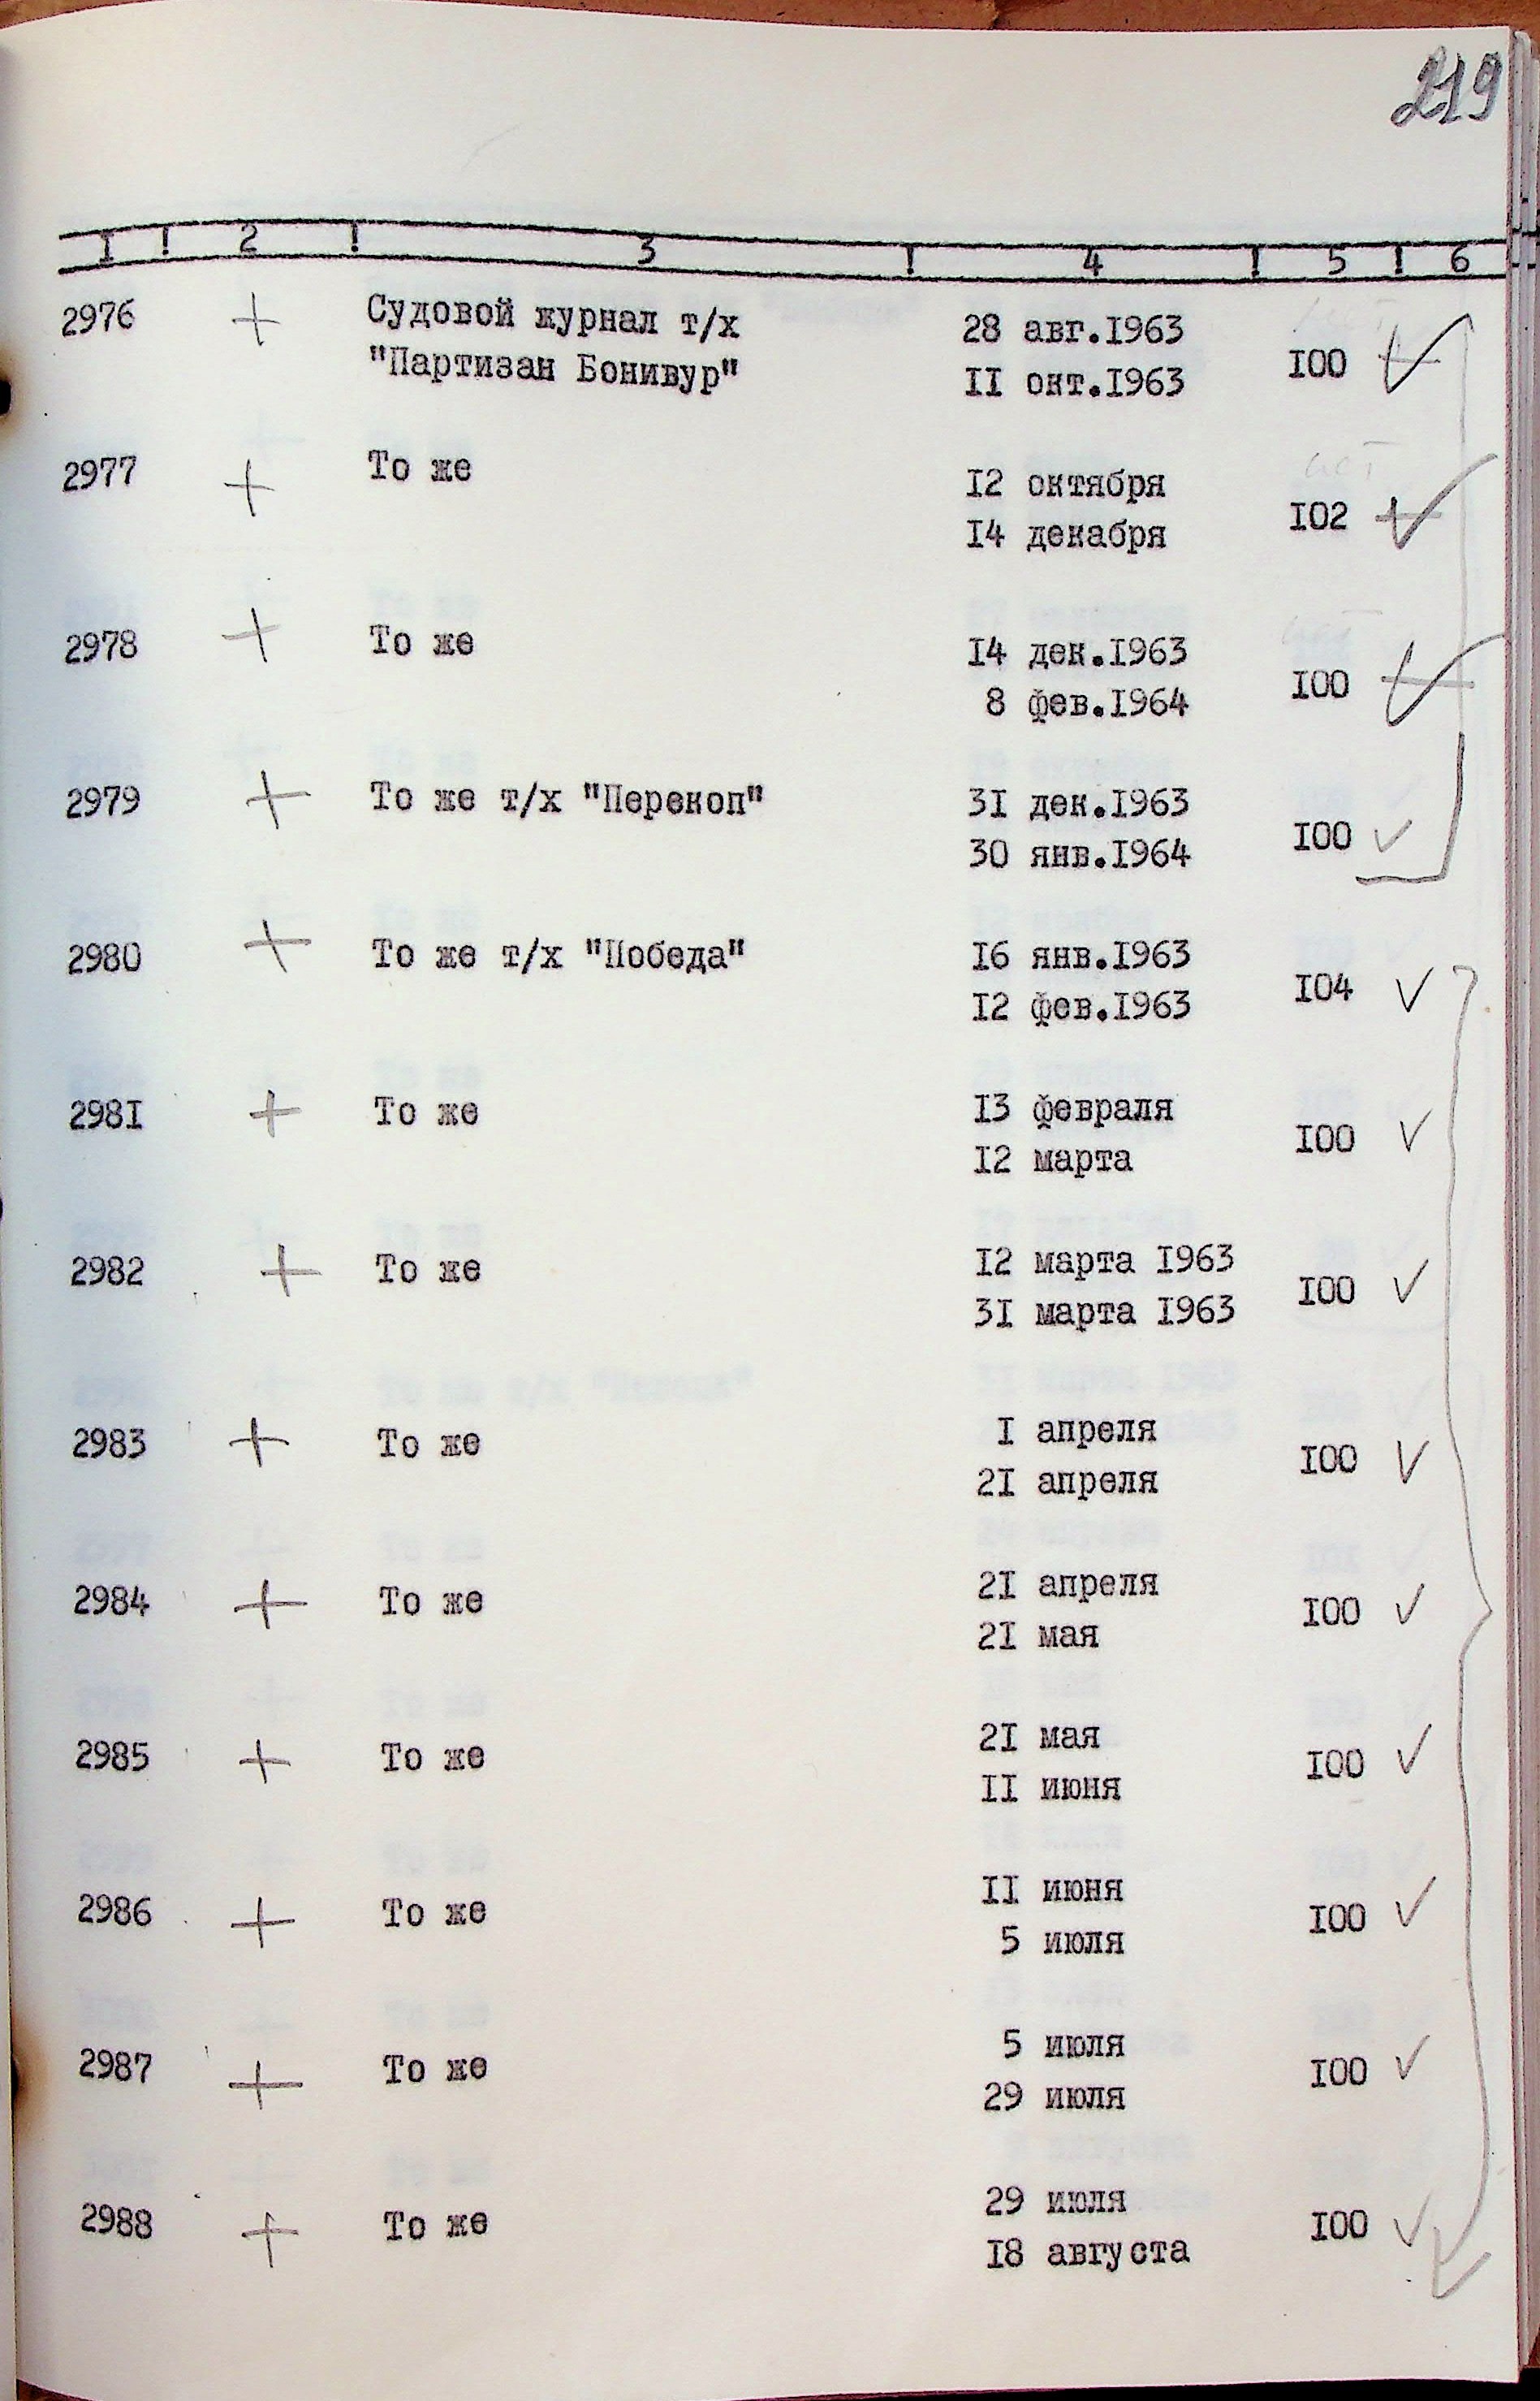 219
I ! 2 ! 3 ! 4 ! 5 ! 6
2976 + Судовой журнал т/х 28 авг.I963
"Партизан Бонивур" II окт.I963 I00
2977 + То же I2 октября
I4 декабря I02
2978 + То же I4 дек.I963
8 фев.I964 I00
2979 + То же т/х "Перекоп" 3I дек.I963
30 янв.I964 I00 ✓
2980 + То же т/х "Победа" I6 янв.I963
I2 фев.I963 I04 ✓
298I + То же I3 февраля
I2 марта I00 ✓
2982 + То же I2 марта I963
3I марта I963 I00 ✓
2983 + То же I апреля
2I апреля I00 ✓
2984 + То же 2I апреля
2I мая I00 ✓
2985 + То же 2I мая
II июня I00 ✓
2986 + То же II июня
5 июля I00 ✓
2987 + То же 5 июля
29 июля I00 ✓
2988 + То же 29 июля
I8 августа I00 ✓